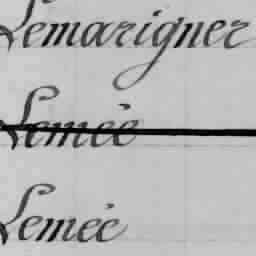 Lemarigner
Lemée
Lemée